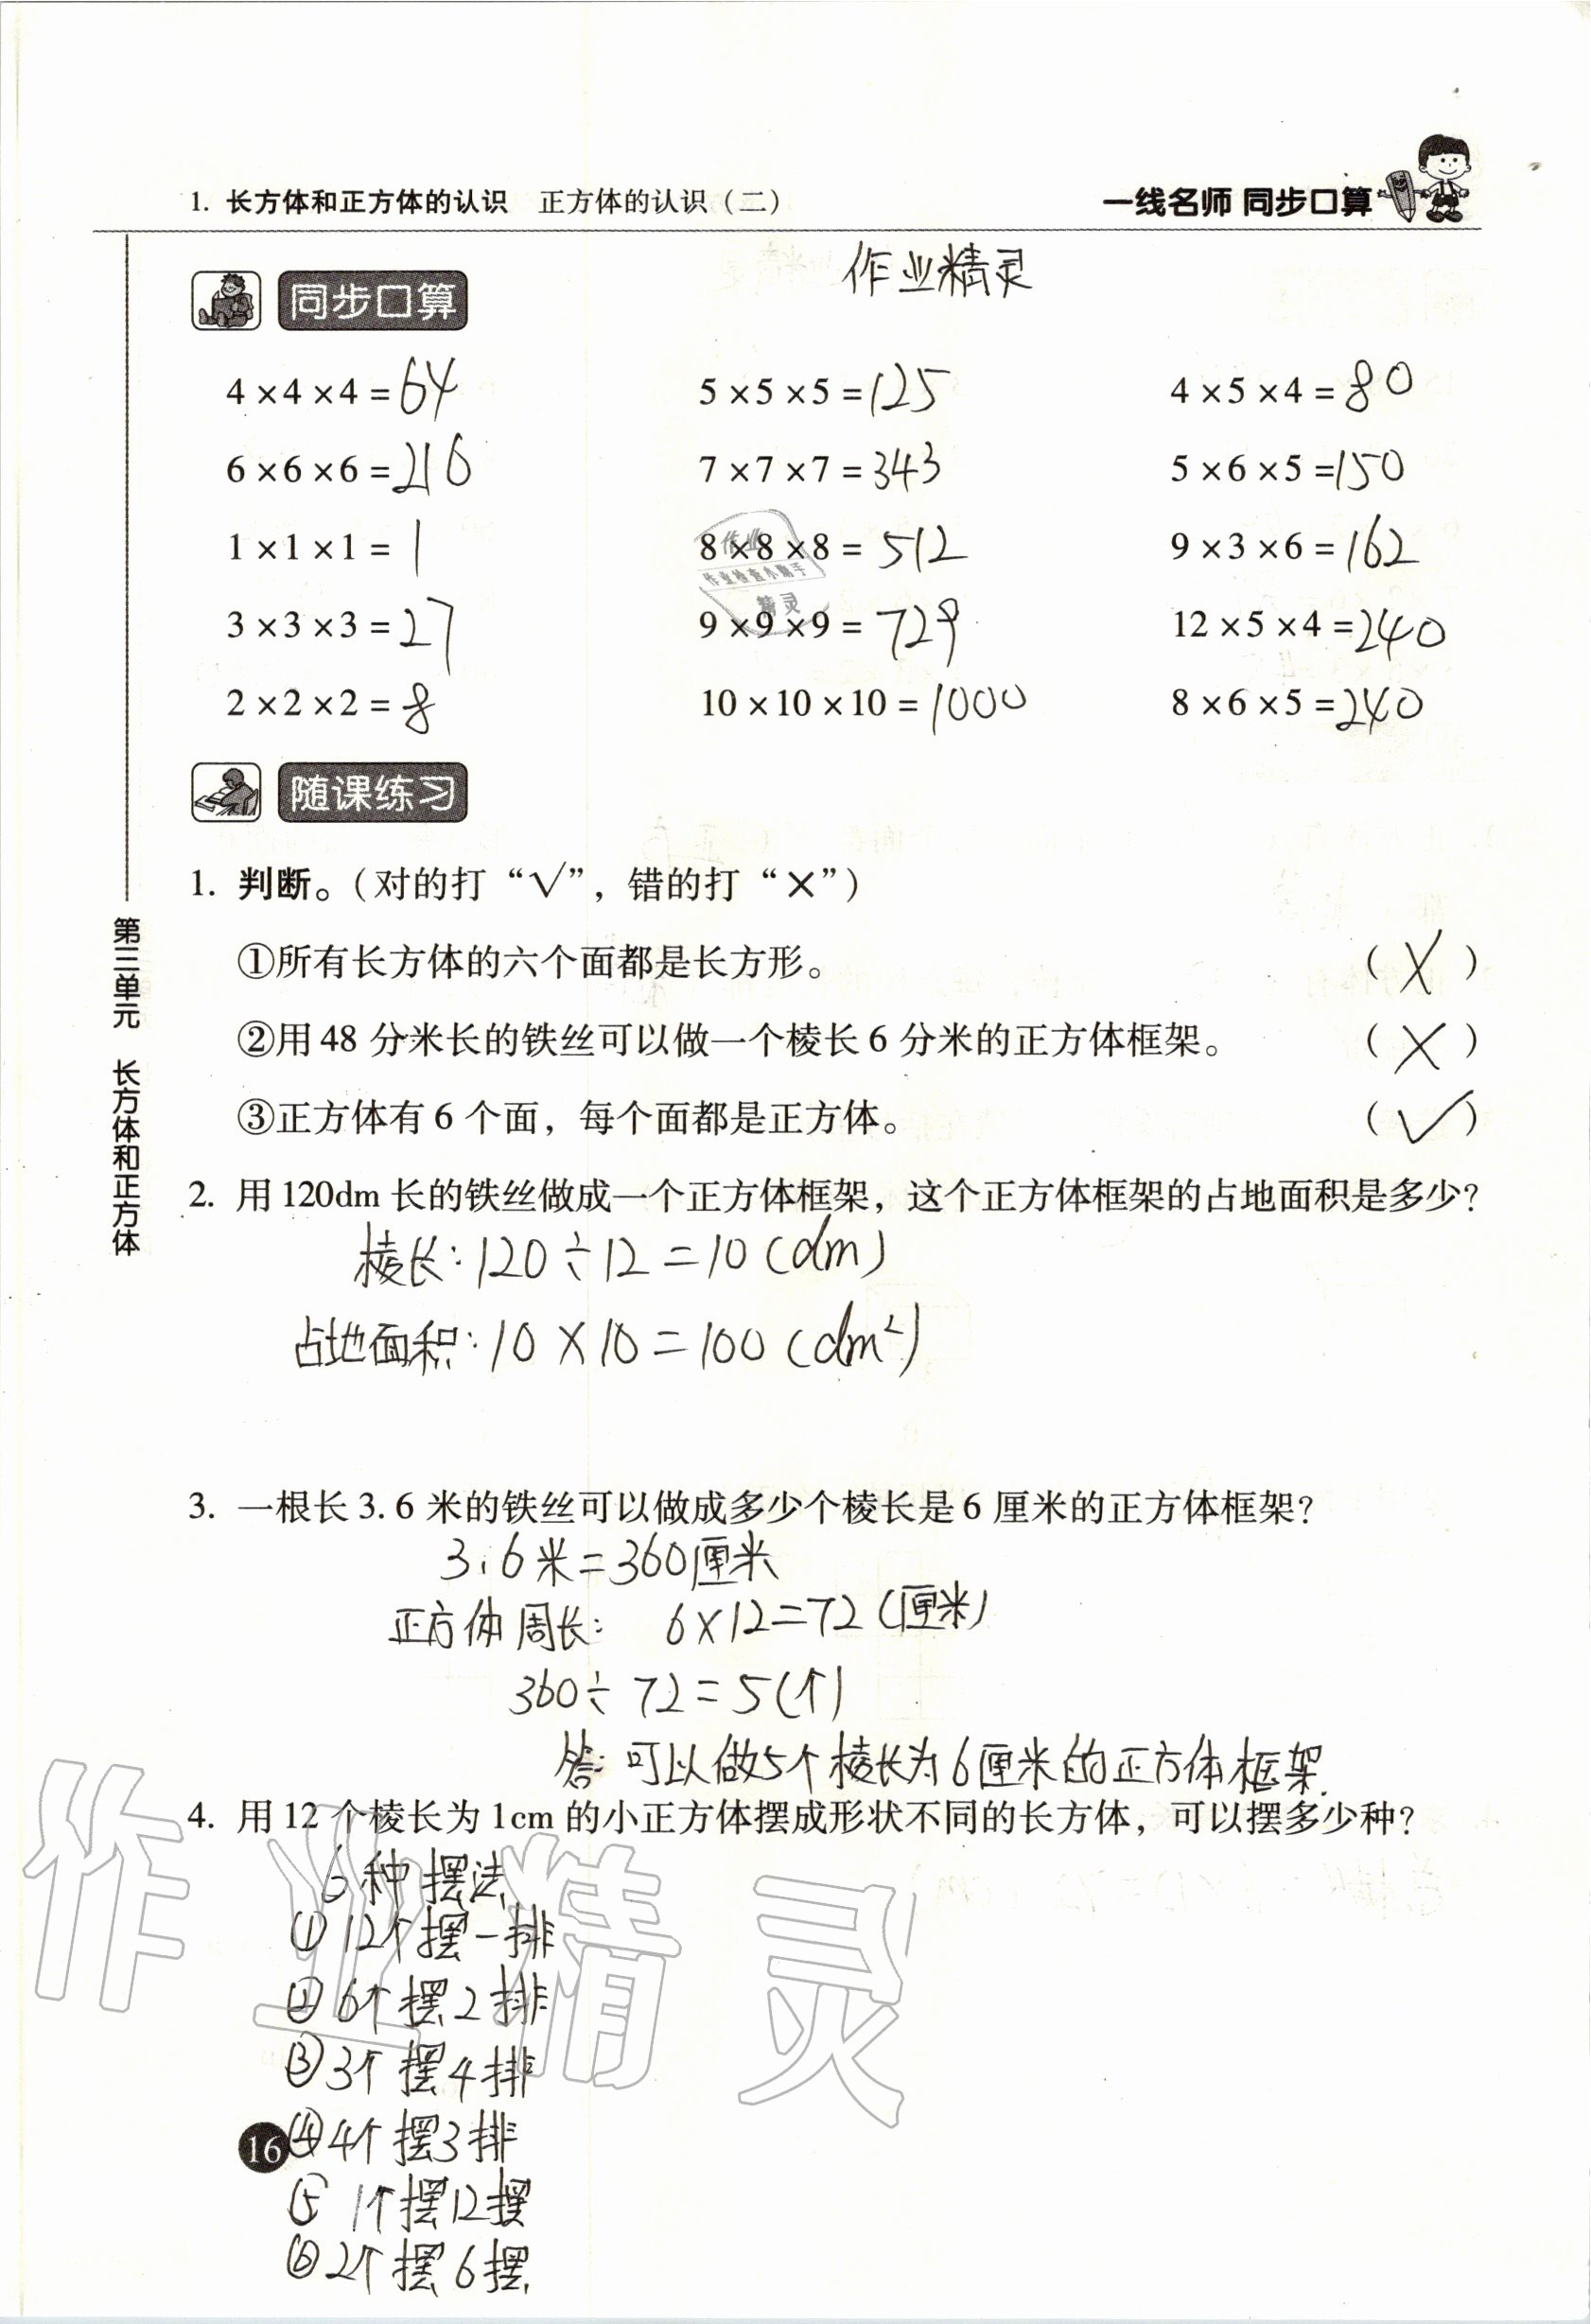 1. 长方体和正方体的认识 正方体的认识(二)
一线名师 同步口算
作业精灵
同步口算
4×4×4=64 5×5×5=125 4×5×4=80
6×6×6=216 7×7×7=343 5×6×5=150
1×1×1=1 8×8×8=512 9×3×6=162
3×3×3=27 9×9×9=729 12×5×4=240
2×2×2=8 10×10×10=1000 8×6×5=240
作业
作业检查小助手
精灵
随课练习
1. 判断。(对的打“√”,错的打“×”)
①所有长方体的六个面都是长方形。 (×)
②用48分米长的铁丝可以做一个棱长6分米的正方体框架。 (×)
③正方体有6个面,每个面都是正方体。 (√)
第三单元 长方体和正方体
2. 用120dm长的铁丝做成一个正方体框架,这个正方体框架的占地面积是多少?
棱长:120÷12=10(dm)
占地面积:10×10=100(dm²)
3. 一根长3.6米的铁丝可以做成多少个棱长是6厘米的正方体框架?
3.6米=360厘米
正方体周长: 6×12=72(厘米)
360÷72=5(个)
答:可以做5个棱长为6厘米的正方体框架.
4. 用12个棱长为1cm的小正方体摆成形状不同的长方体,可以摆多少种?
6种摆法
①12个摆一排
②6个摆2排
③3个摆4排
④4个摆3排
⑤1个摆12摆
⑥2个摆6摆
16
作业精灵